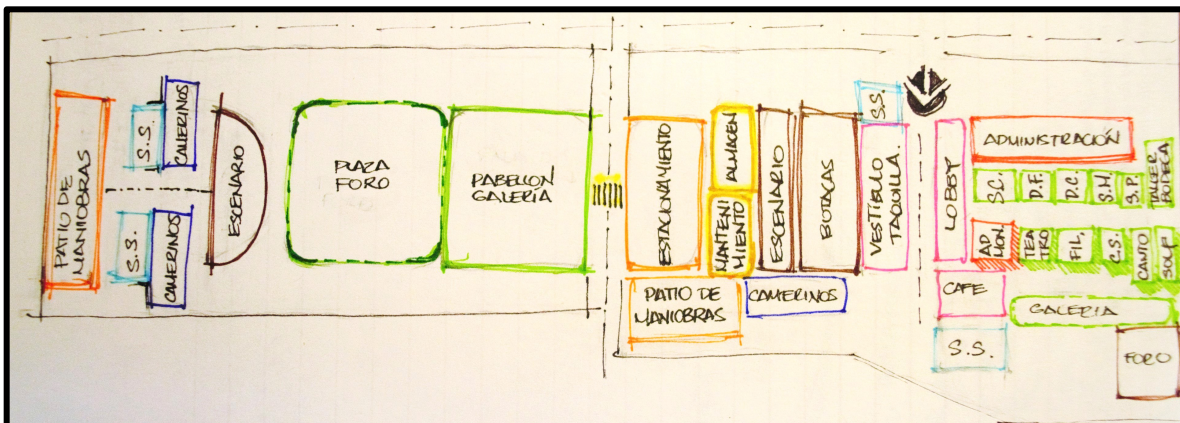 PATIO DE
MANIOBRAS
S.S.
CAMERINOS
S.S.
CAMERINOS
ESCENARIO
PLAZA
FORO
PABELLON
GALERÍA
ESTACIONAMIENTO
ALMACEN
MANTENI
MIENTO
ESCENARIO
BUTACAS
S.S.
VESTIBULO
TAQUILLA.
PATIO DE
MANIOBRAS
CAMERINOS
LOBBY
ADMINISTRACIÓN
S.C.
D.F.
D.C.
S.H.
S.P.
TALLER
BODEGA
AD
MON.
TEA
TRO
FIL.
C.S.
CANTO
CAFE
GALERIA
S.S.
FORO